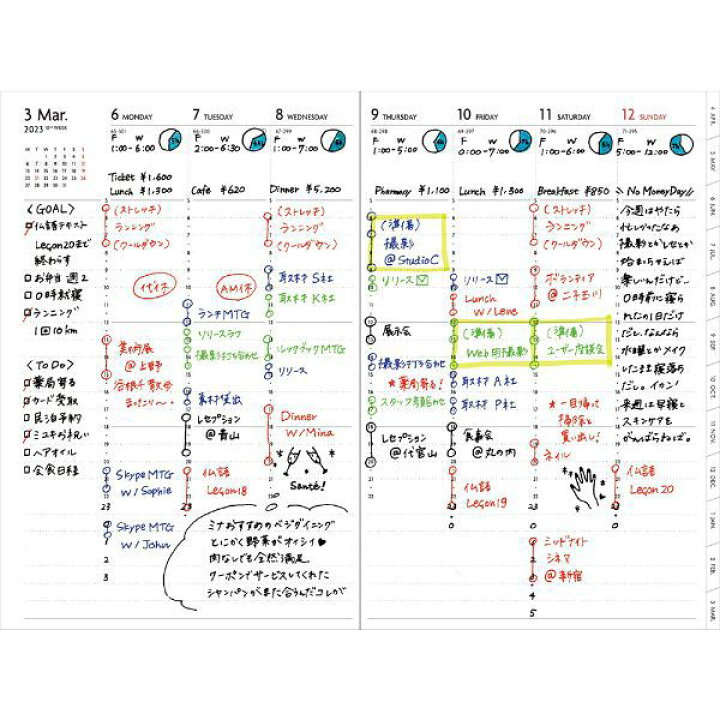 3 Mar.
2023 10TH WEEK
M T W T F S S
〈GOAL〉
仏語テキスト
Leçon20まで
終わらす
お弁当 週2
0時就寝
ランニング
1回10km
〈TODO〉
薬局寄る
カード受取
民泊予約
ミユキお祝い
ヘアオイル
会食日程
6 MONDAY
65-301
F W
1:00-6:00
Ticket ¥1,600
Lunch ¥1,300
(ストレッチ)
ランニング
(クールダウン)
代休
美術展
@上野
谷根千散歩
まったり〜
Skype MTG
w/Sophie
Skype MTG
w/John
7 TUESDAY
66-300
F W
2:00-6:30
Cafe ¥620
AM休
ランチMTG
リリースラフ
撮影打ち合わせ
素材貸出
レセプション
@青山
仏語
Leçon18
8 WEDNESDAY
67-299
F W
1:00-7:00
Dinner ¥5,200
(ストレッチ)
ランニング
(クールダウン)
取材 S社
取材 K社
ルックブックMTG
リリース
Dinner
w/Mina
Santé!
ミナおすすめのベジダイニング
とにかく野菜がオイシイ♥
肉なしでも全然満足。
クーポンでサービスしてくれた
シャンパンがまた合うんだコレが
9 THURSDAY
68-298
F W
1:00-5:00
Pharmacy ¥1,100
(準備)
撮影
@StudioC
リリース
展示会
撮影打ち合わせ
★薬局寄る!
スタッフ打ち合わせ
レセプション
@代官山
10 FRIDAY
69-297
F W
0:00-7:00
Lunch ¥1,300
リリース
Lunch
w/Lene
(準備)
Web用撮影
取材 A社
取材 P社
食事会
@丸の内
仏語
Leçon19
11 SATURDAY
70-296
F W
1:00-6:00
Breakfast ¥850
(ストレッチ)
ランニング
(クールダウン)
ボランティア
@二子玉川
(準備)
ユーザー座談会
★一旦帰って
掃除と
買い出し!
ネイル
ミッドナイト
シネマ
@新宿
12 SUNDAY
71-295
F W
5:00-12:00
\\ No MoneyDay //
今週はやたら
忙しかったなぁ
撮影とかしせつとか
始まっちゃえば
楽しいんだけど…
0時前に寝ら
れたの1日だけ
だし。なんなら
水曜とかメイク
したまま寝落ち
だし。イカン!
来週は早寝と
スキンケアを
がんばらねば。
仏語
Leçon 20
4 APR.
5 MAY
6 JUN.
7 JUL.
8 AUG.
9 SEP.
10 OCT.
11 NOV.
12 DEC.
1 JAN.
2 FEB.
3 MAR.